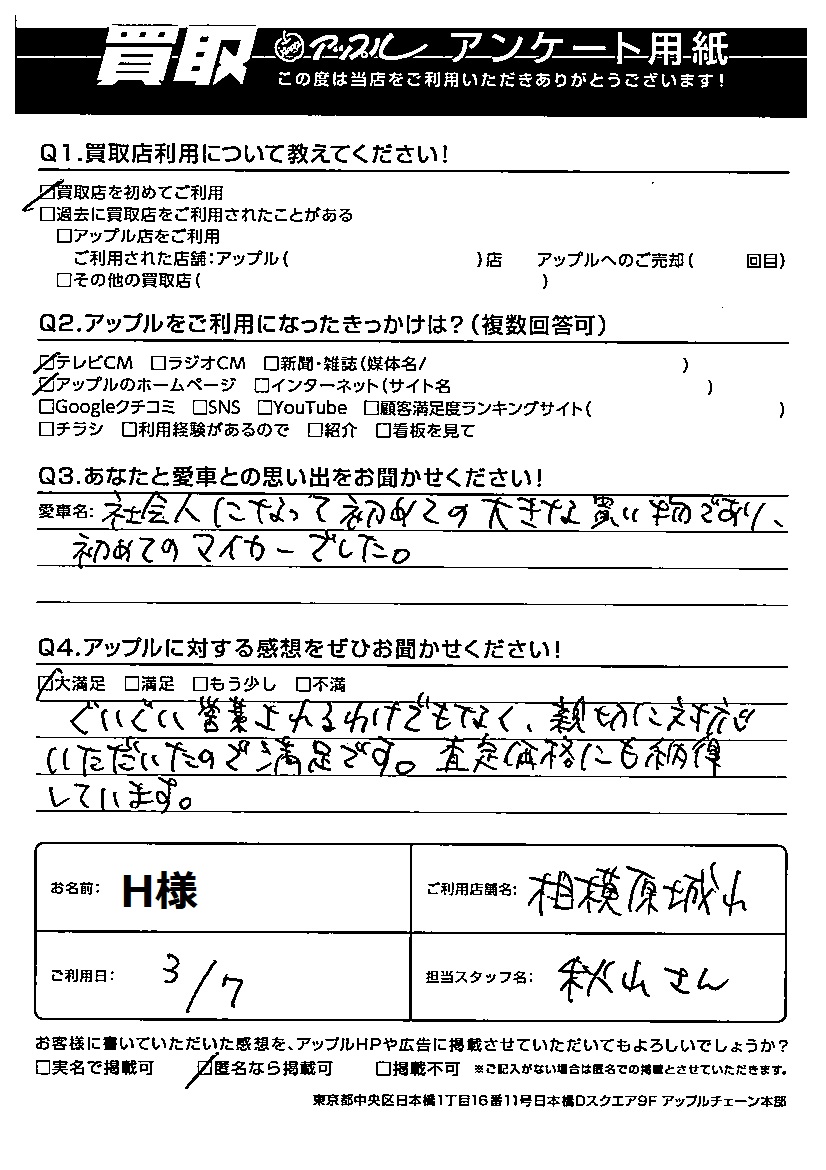 買取 アップル アンケート用紙
この度は当店をご利用いただきありがとうございます!
Q1.買取店利用について教えてください!
☑買取店を初めてご利用
□過去に買取店をご利用されたことがある
□アップル店をご利用
ご利用された店舗:アップル( )店 アップルへのご売却( 回目)
□その他の買取店( )
Q2.アップルをご利用になったきっかけは?(複数回答可)
☑テレビCM □ラジオCM □新聞・雑誌(媒体名/ )
☑アップルのホームページ □インターネット(サイト名 )
□Googleクチコミ □SNS □YouTube □顧客満足度ランキングサイト( )
□チラシ □利用経験があるので □紹介 □看板を見て
Q3.あなたと愛車との思い出をお聞かせください!
愛車名: 社会人になって初めての大きな買い物であり、
初めてのマイカーでした。
Q4.アップルに対する感想をぜひお聞かせください!
☑大満足 □満足 □もう少し □不満
ぐいぐい営業されるわけでもなく、親切に対応
いただいたので満足です。査定価格にも納得
しています。
お名前: H様 ご利用店舗名: 相模原城山
ご利用日: 3/7 担当スタッフ名: 秋山さん
お客様に書いていただいた感想を、アップルHPや広告に掲載させていただいてもよろしいでしょうか?
□実名で掲載可 ☑匿名なら掲載可 □掲載不可 ※ご記入がない場合は匿名での掲載とさせていただきます。
東京都中央区日本橋1丁目16番11号日本橋Dスクエア9F アップルチェーン本部